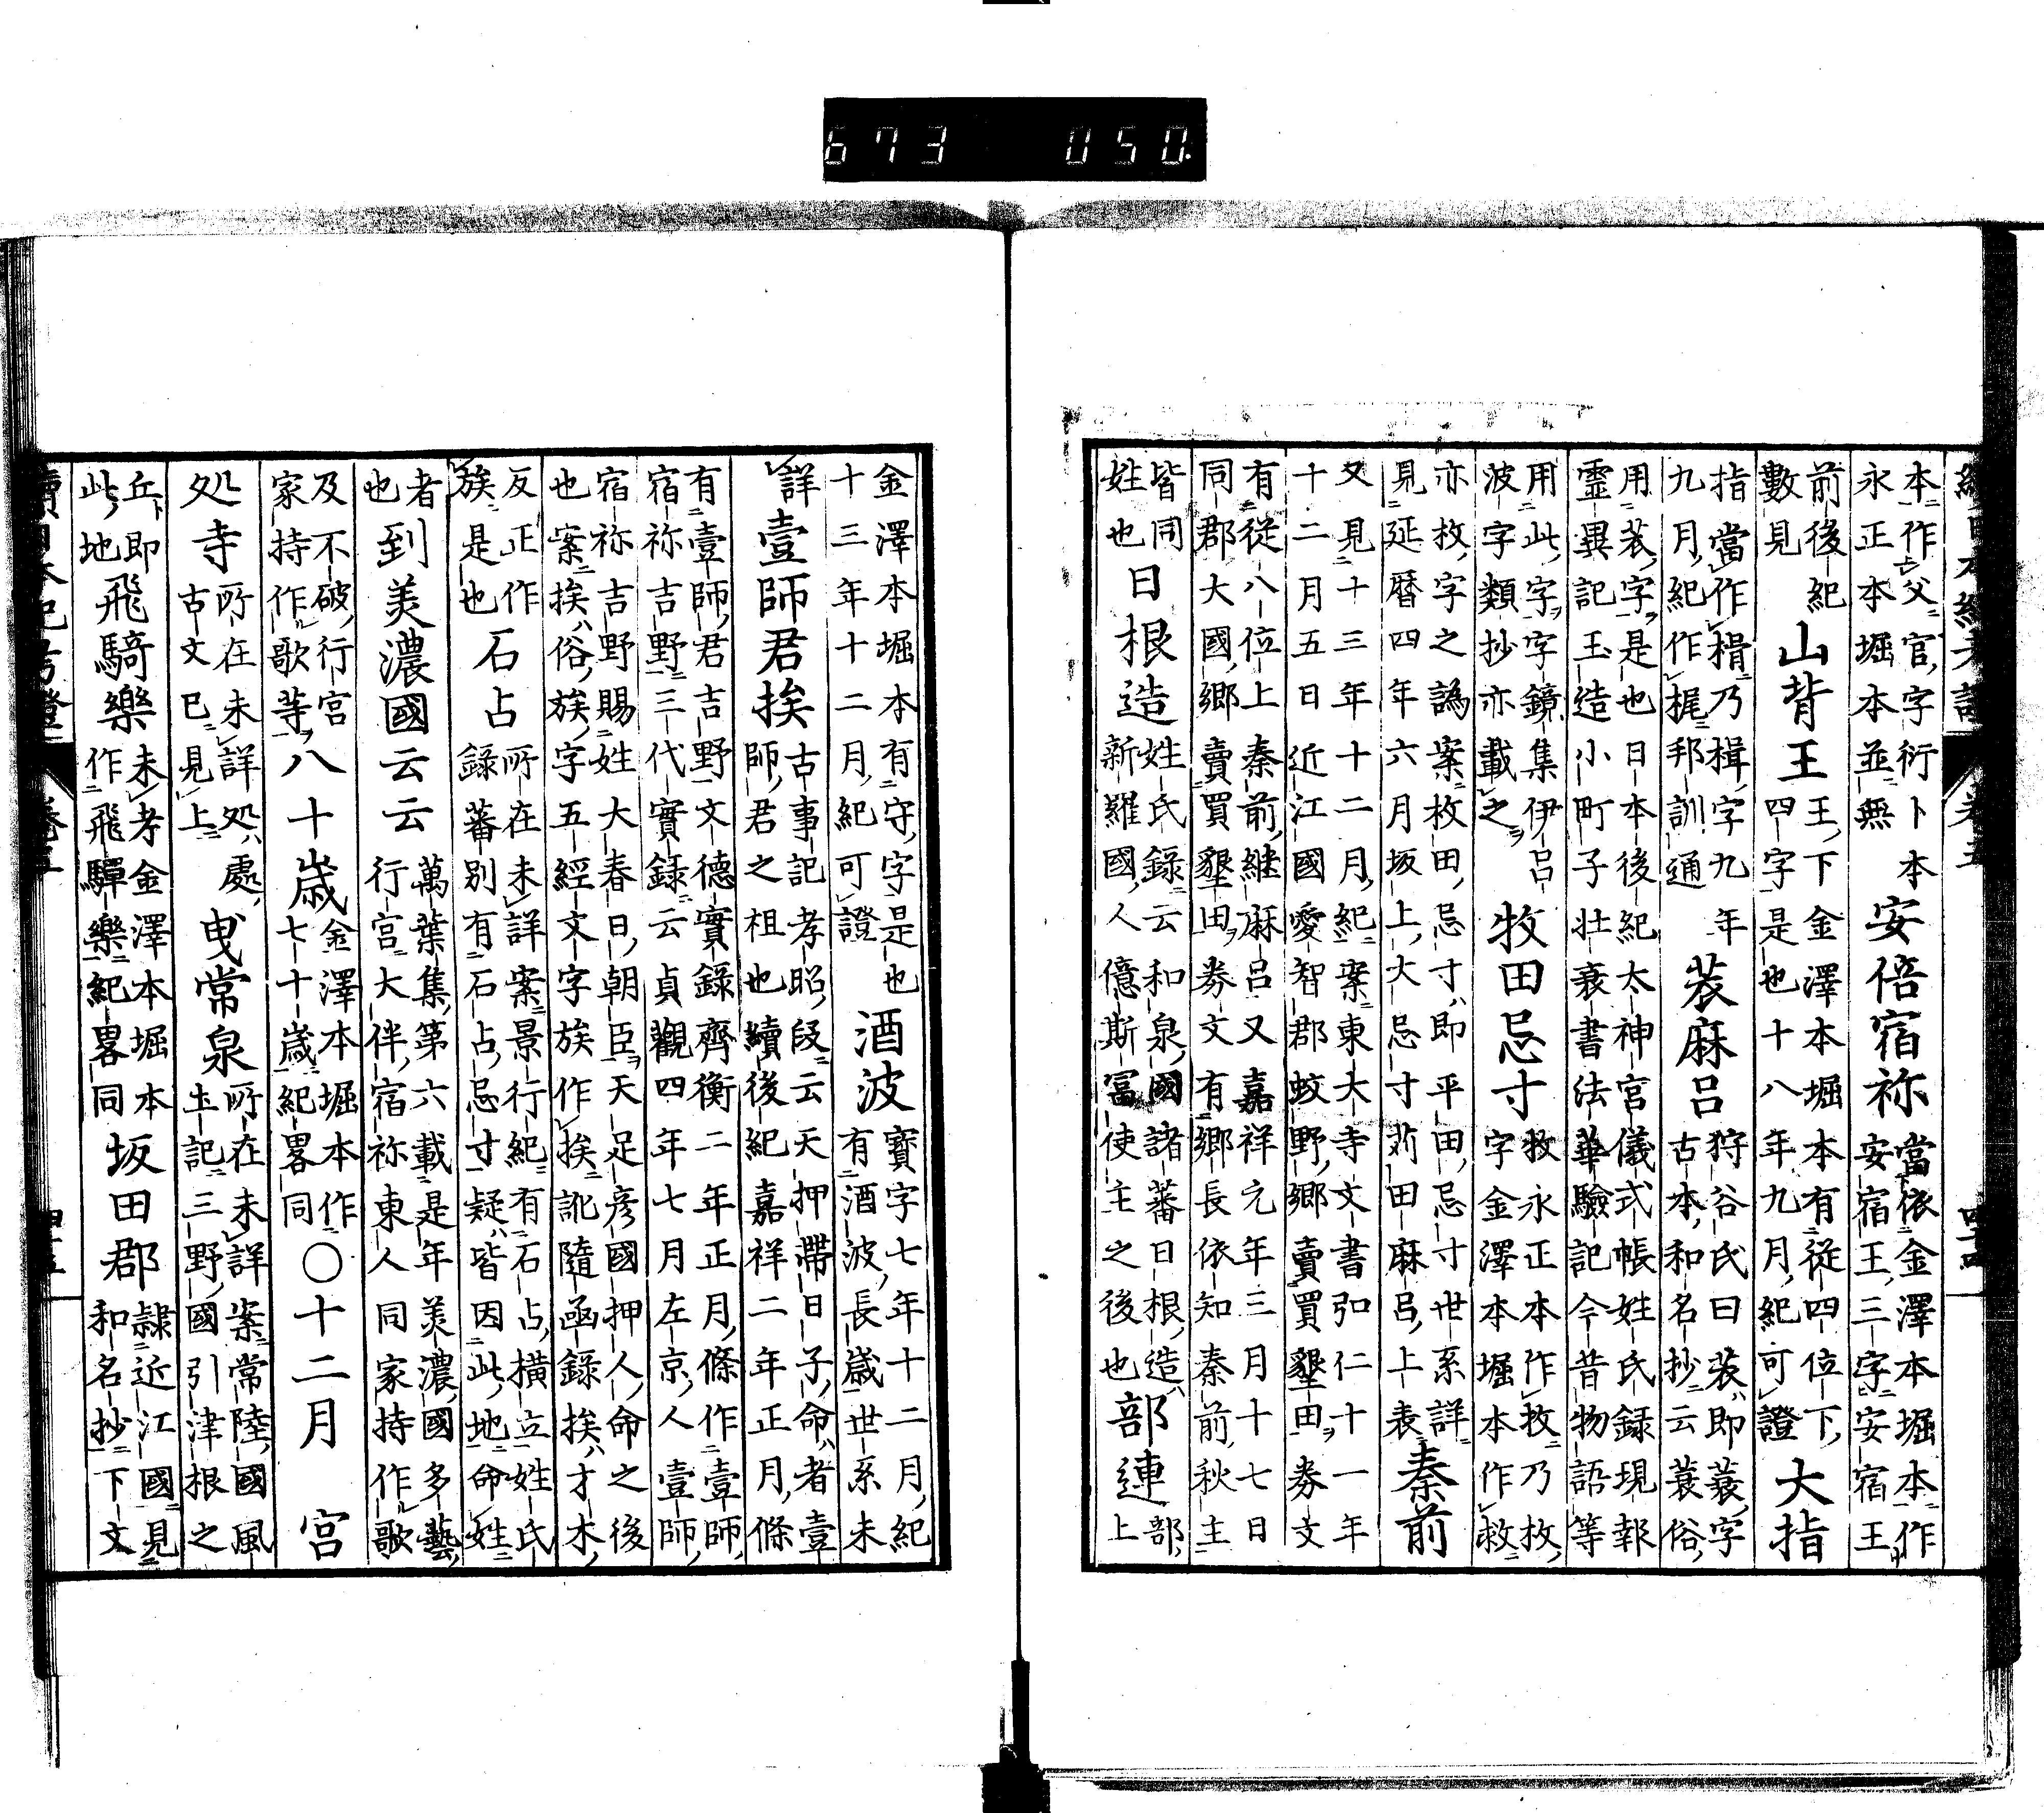 673 050.
本作父官字衍卜本
永正本堀本並無
安倍宿祢
當依金澤本堀本作
安宿王三字安宿王
前後紀
數見
山背王
王下金澤本堀本有從四位下
四字是也十八年九月紀可證
大指
指當作楫乃楫字九年
九月紀作梶邦訓通
蓑麻呂
狩谷氏曰蓑即蓑字
古本和名抄云蓑俗
用蓑字是也日本後紀太神宮儀式帳姓氏録現報
靈異記玉造小町子壯衰書法華驗記今昔物語等
用此字字鏡集伊呂
波字類抄亦載之
牧田忌寸
牧永正本作枚乃枚
字金澤本堀本作救
亦枚字之譌案枚田忌寸即平田忌寸世系詳
見延暦四年六月坂上大忌寸苅田麻呂上表
秦前
又見十三年十二月紀案東大寺文書弘仁十一年
十二月五日近江國愛智郡蚊野郷賣買墾田券文
有從八位上秦前継麻呂又嘉祥元年三月十七日
同郡大國郷賣買墾田券文有郷長依知秦前秋主
皆同
姓也
日根造
姓氏録云和泉國諸蕃日根造
新羅國人億斯富使主之後也
部連
部
上
金澤本堀本有守字是也
十三年十二月紀可證
酒波
寳字七年十二月紀
有酒波長歳世系未
詳
壹師君挨
古事記孝昭段云天押帶日子命者壹
師君之祖也續後紀嘉祥二年正月條
有壹師君吉野文德實錄齊衡二年正月條作壹師
宿祢吉野三代實録云貞觀四年七月左京人壹師
宿祢吉野賜姓大春日朝臣天足彦國押人命之後
也案挨俗族字五經文字族作挨訛隨函録挨才木
反正作
族是也
石占
所在未詳案景行紀有石占横立姓氏
録蕃別有石占忌寸疑皆因此地命姓
者
也
到美濃國云云
萬葉集第六載是年美濃國多藝
行宮大伴宿祢東人同家持作歌
及不破行宮
家持作歌等
八十歳
金澤本堀本作
七十歳紀畧同
〇十二月
宮
処寺
所在未詳処處
古文已見上
曳常泉
所在未詳案常陸國風
土記三野國引津根之
丘即
此地
飛騎樂
未考金澤本堀本
作飛驒樂紀畧同
坂田郡
隷近江國見
和名抄下文